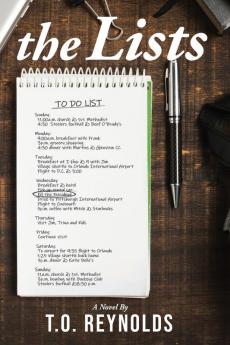 the Lists
TO DO LIST
Sunday
11:00a.m. church @ St. Methodist
4:30 Steelers football @ Beef O'Brady's
Monday
9:00a.m. breakfast with Frank
3p.m. grocery shopping
dinner with Martins @ Glenview CC
Tuesday
Breakfast at I-Hop @ with Jim
Village shuttle to Orlando International Airport
Flight to D.C. @ 3:00
Wednesday
Breakfast @ hotel
Pick up rental car
Kill the President
Drive to Pittsburgh International Airport
Flight to Cincinnati
6p.m. coffee with Mitch @ Starbucks
Thursday
Visit Jim, Trina and kids
Friday
Continue visit
Saturday
To airport for 9:35 flight to Orlando
1:25 Village shuttle back home
6p.m. dinner @ Katie Belle's
Sunday
11a.m. church @ St. Methodist
3p.m. bowling with Buckeye Club
Steelers football @ 8:30 p.m.
A Novel By
T.O. REYNOLDS